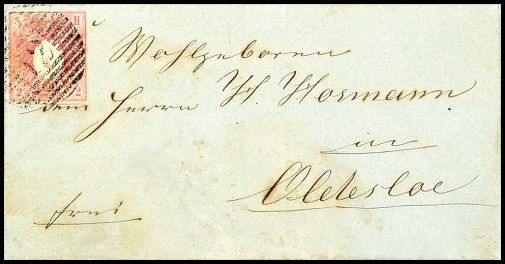 S H
2
Wohlgeboren
dem Herrn H. Hormann
in
Oldesloe
frei